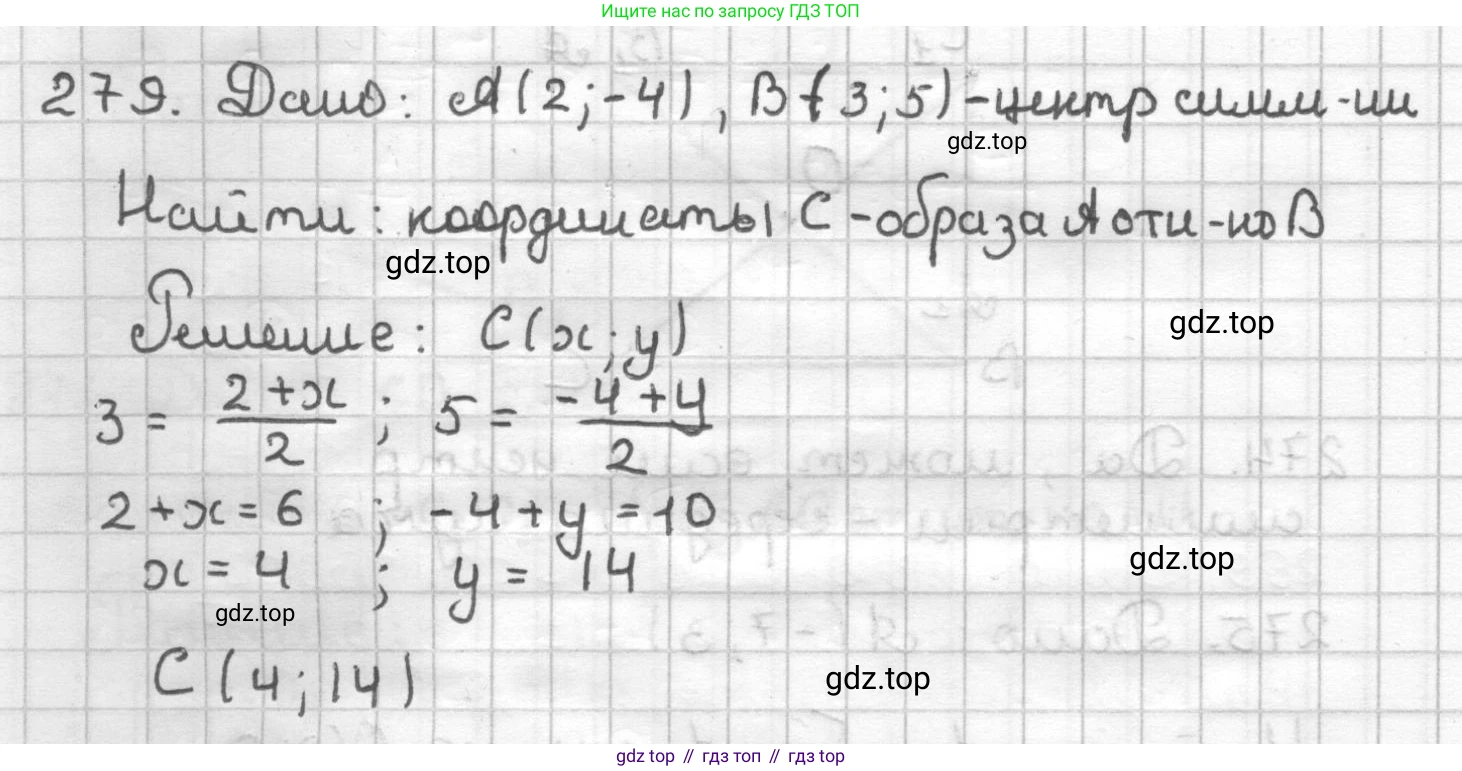 Ищите нас по запросу ГДЗ ТОП
279. Дано: A(2;-4), B(3;5)-центр симм-ии
gdz.top
Найти: координаты C-образа A отн-но B
gdz.top
Решение: C(x;y)
gdz.top
3 = (2+x)/2 ; 5 = (-4+y)/2
2+x=6 ; -4+y=10
x=4 ; y=14
gdz.top
gdz.top
C(4;14)
gdz.top
gdz top // гдз топ // гдз top